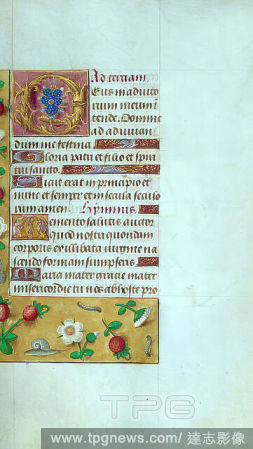 Ad tertiam
Deus in adiuto
rium meum in
tende. Domine
ad adiuvan
dum me festina.
Gloria patri et filio et spiri
tui sancto.
Sicut erat in principio et
nunc et semper et in secula seculo
rum amen. Hymnus
Memento salutis auctor
quod nostri quondam
corporis ex illibata virgine na
scendo formam sumpseris
Maria mater gracie mater
misericordie tu nos ab hoste pro
TPG
www.tpgnews.com/ 達志影像